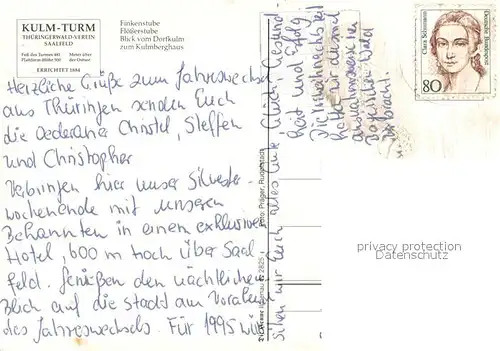 KULM-TURM
THÜRINGERWALD-VEREIN
SAALFELD
Fuß des Turmes 481 Meter über
Plattform-Höhe 500 der Ostsee
ERRICHTET 1884
Finkenstube
Flößerstube
Blick vom Dorfkulm
zum Kulmberghaus
Herzliche Grüße zum Jahreswechsel
aus Thüringen senden Euch
die Oederaner Christel, Steffen
und Christopher
Verbringen hier unser Silvester-
wochenende mit unseren
Bekannten in einem exklusiven
Hotel, 600 m hoch über Saal
feld. Genießen den nächtlichen
Blick auf die Stadt am Vorabend
des Jahreswechsels. Für 1995 wün
schen wir Euch alles Gute, Glück, Gesund
heit und Erfolg
Die Weihnachtszeit
hatten wir diesmal
ausnahmsweise im
Bayrischen Wald
verbracht.
Foto: Präger, Rudolstadt
2825
Clara Schumann
Deutsche Bundespost
80
privacy protection
Datenschutz